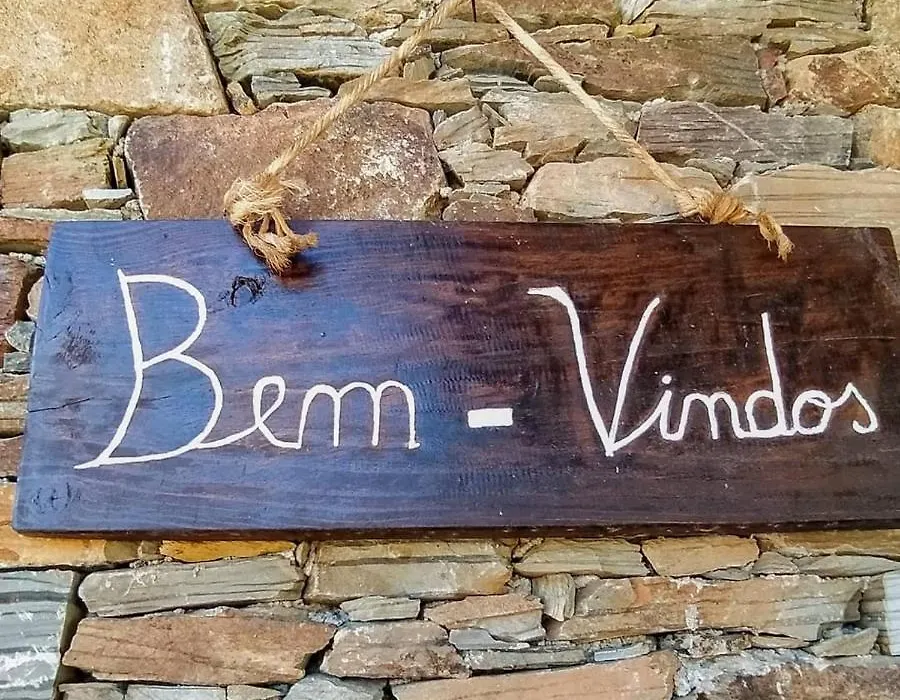 Bem - Vindos